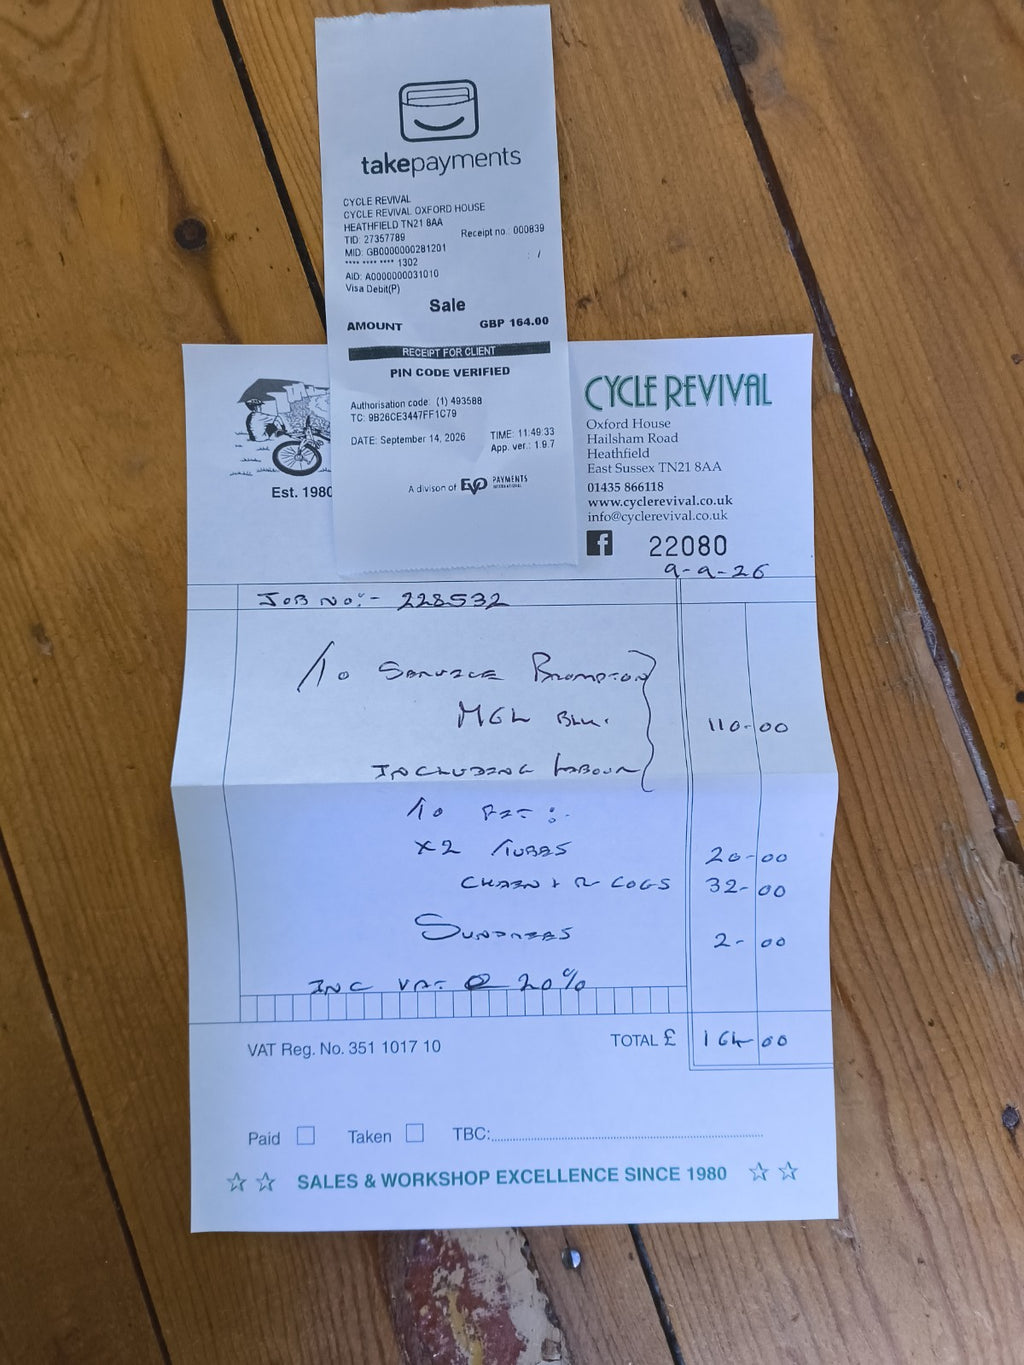 takepayments
CYCLE REVIVAL
CYCLE REVIVAL OXFORD HOUSE
HEATHFIELD TN21 8AA
TID: 27357789 Receipt no.: 000839
MID: GB0000000281201
**** **** **** 1302
AID: A0000000031010
Visa Debit(P)
Sale
AMOUNT GBP 164.00
RECEIPT FOR CLIENT
PIN CODE VERIFIED
Authorisation code: (1) 493588
TC: 9B26CE3447FF1C79
DATE: September 14, 2026 TIME: 11:49:33
App. ver.: 1.9.7
A divison of EVO PAYMENTS INTERNATIONAL
Est. 1980
CYCLE REVIVAL
Oxford House
Hailsham Road
Heathfield
East Sussex TN21 8AA
01435 866118
www.cyclerevival.co.uk
info@cyclerevival.co.uk
22080
9-9-26
JOB NO:- 228532
To SERVICE BROMPTON
M6L BLK. 110-00
INCLUDING LABOUR
To FIT:-
X2 TUBES 20-00
CHAIN + 2 COGS 32-00
SUNDRIES 2-00
INC VAT @ 20%
VAT Reg. No. 351 1017 10 TOTAL £ 164-00
Paid Taken TBC:
SALES & WORKSHOP EXCELLENCE SINCE 1980